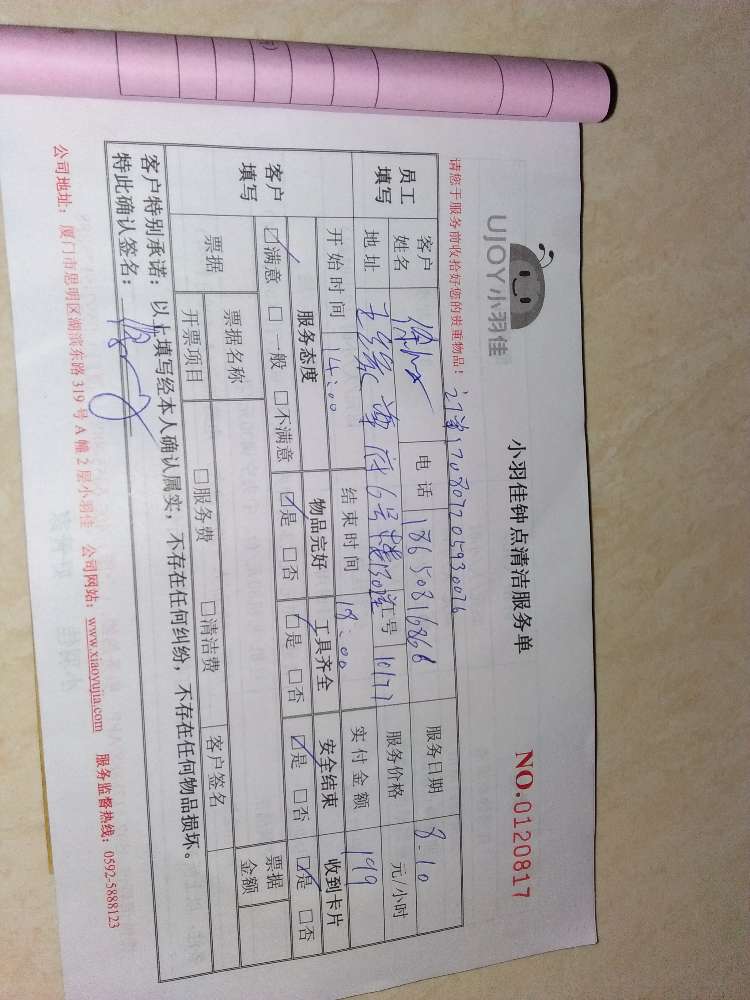 UJOY小羽佳
小羽佳钟点清洁服务单
NO.0120817
请您于服务前收拾好您的贵重物品!
170807205930076
员工填写
客户姓名 徐 电话 18650816866 服务日期 8.10
地址 府6号楼 工号 10177 服务价格 元/小时
开始时间 14:00 结束时间 18:00 实付金额 199
客户填写
服务态度 物品完好 工具齐全 安全结束 收到卡片
☑满意 □一般 □不满意 ☑是 □否 ☑是 □否 ☑是 □否 ☑是 □否
票据 票据名称 票据金额
开票项目 □服务费 □清洁费 客户签名
客户特别承诺:以上填写经本人确认属实,不存在任何纠纷,不存在任何物品损坏。
特此确认签名:
公司地址:厦门市思明区湖滨东路319号A幢2层小羽佳 公司网站:www.xiaoyujia.com 服务监督热线:0592-5888123